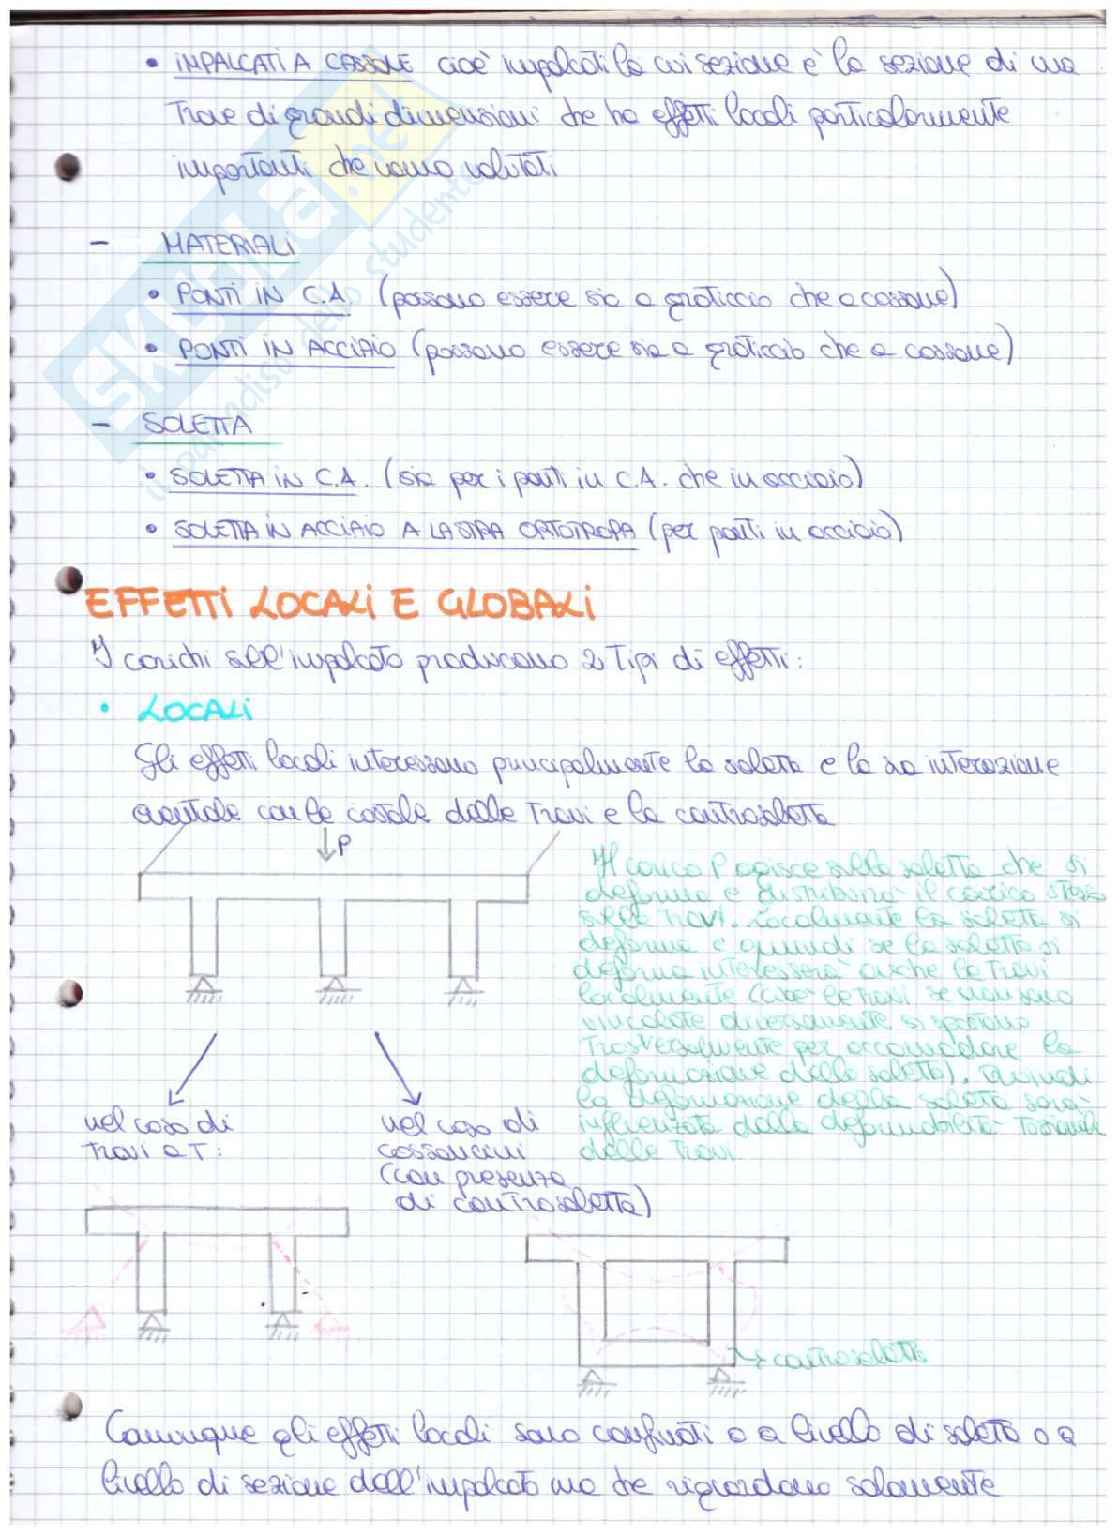 • IMPALCATI A CASSONE cioè impalcati la cui sezione è la sezione di una
Trave di grandi dimensioni che ha effetti locali particolarmente
importanti che vanno valutati
- MATERIALI
• PONTI IN C.A. (possono essere sia a graticcio che a cassone)
• PONTI IN ACCIAIO (possono essere sia a graticcio che a cassone)
- SOLETTA
• SOLETTA IN C.A. (sia per i ponti in C.A. che in acciaio)
• SOLETTA IN ACCIAIO A LASTRA ORTOTROPA (per ponti in acciaio)
EFFETTI LOCALI E GLOBALI
I carichi sull'impalcato producono 2 Tipi di effetti:
• LOCALI
Gli effetti locali interessano principalmente la soletta e la sua interazione
eventuale con le costole delle Travi e la controsoletta
P
Il carico P agisce sulla soletta che si
deforma e distribuirà il carico stesso
sulle Travi. Localmente la soletta si
deforma e quindi se la soletta si
deforma interesserà anche le Travi
localmente (cioè le travi se non sono
vincolate diversamente si spostano
Trasversalmente per accomodare la
deformazione della soletta). Quindi
la deformazione della soletta sarà
influenzata dalla deformabilità Torsionale
delle Travi.
nel caso di
Travi a T:
nel caso di
cassoncini
(con presenza
di controsoletta)
controsoletta
Comunque gli effetti locali sono confinati o a livello di soletta o a
livello di sezione dell'impalcato ma che riguardano solamente
SKUOLA.net
il paradiso dello studente